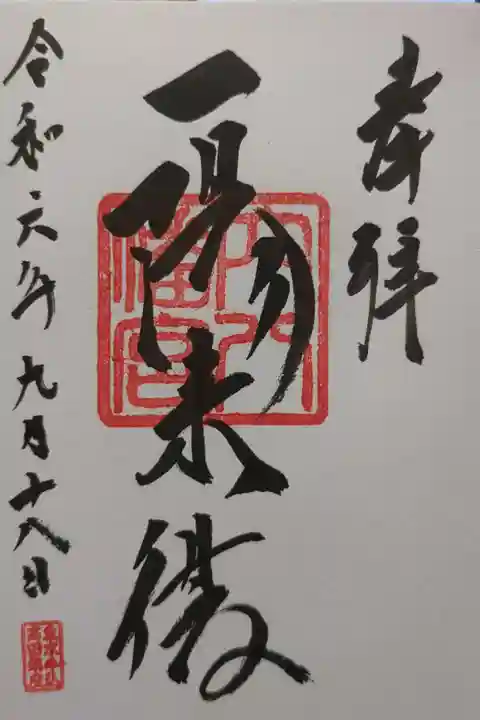 奉拝
一陽来復
令和六年九月十八日